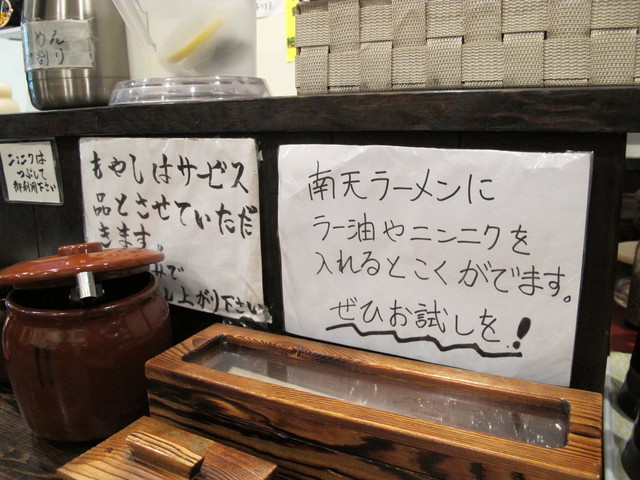 めん
割り
ニンニクは
つぶして
御利用下さい
もやしはサービス
品とさせていただ
きます。
上がり下さい
南天ラーメンに
ラー油やニンニクを
入れるとこくがでます。
ぜひお試しを!